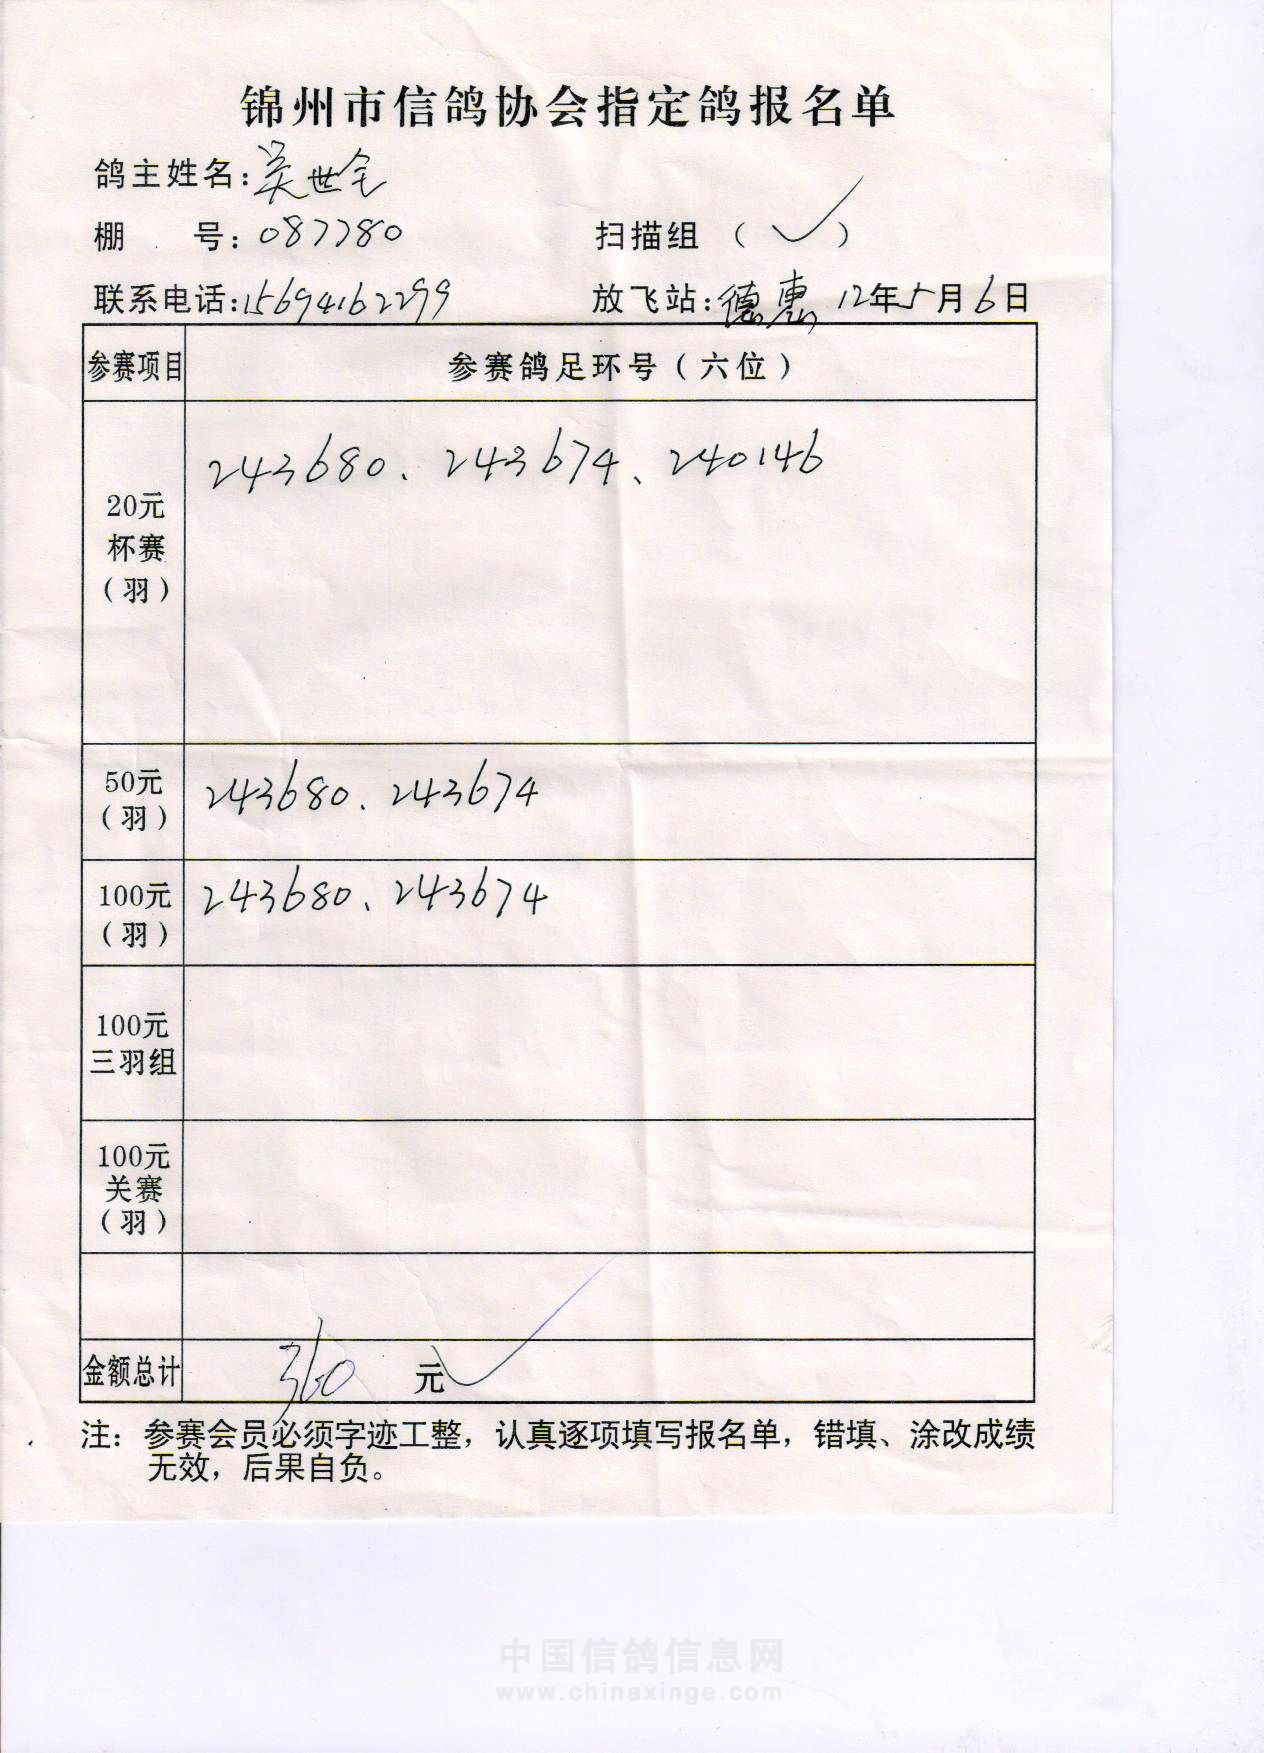 锦州市信鸽协会指定鸽报名单
鸽主姓名:吴世全
棚 号:087780 扫描组 ( ✓ )
联系电话:15694162299 放飞站:德惠 12年5月6日
参赛项目 参赛鸽足环号(六位)
20元
杯赛
(羽)
243680、243674、240146
50元
(羽)
243680、243674
100元
(羽)
243680、243674
100元
三羽组
100元
关赛
(羽)
金额总计 360 元✓
注：参赛会员必须字迹工整，认真逐项填写报名单，错填、涂改成绩
无效，后果自负。
中国信鸽信息网
www.chinaxinge.com